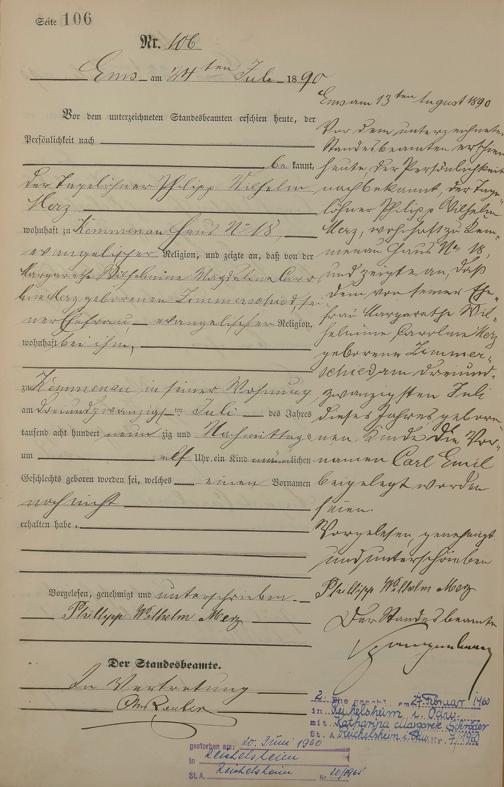 Seite 106
Nr. 106
Ems am 24 ten Juli 1890
Vor dem unterzeichneten Standesbeamten erschien heute, der
Persönlichkeit nach
bekannt,
der Tagelöhner Philipp Wilhelm
Merz
wohnhaft zu Kemmenau Haus No 18,
evangelischer Religion, und zeigte an, daß von der
Margarethe Wilhelmine Magdalena Caro
line Merz geborenen Zimmerschied, sei
ner Ehefrau evangelischer Religion,
wohnhaft bei ihm,
zu Kemmenau in seiner Wohnung
am dreiundzwanzigsten Juli des Jahres
tausend acht hundert neunzig und Nachmittags
um elf Uhr ein Kind männlichen
Geschlechts geboren worden sei, welches einen Vornamen
noch nicht
erhalten habe.
Vorgelesen, genehmigt und unterschrieben.
Philipp Wilhelm Merz
Der Standesbeamte.
In Vertretung
Ems am 13 ten August 1890
Vor dem unterzeichneten
Standesbeamten erschien
heute, der Persönlichkeit
nach bekannt, der Tage
löhner Philipp Wilhelm
Merz, wohnhaft zu Kem
menau Haus No 18,
und zeigte an, daß
dem von seiner Ehe
frau Margarethe Wil-
helmine Caroline Merz
geborene Zimmer-
schied am dreiund
zwanzigsten Juli
dieses Jahres gebore
nen Kinde die Vor-
namen Carl Emil
beigelegt worden
seien.
Vorgelesen, genehmigt
und unterschrieben
Philipp Wilhelm Merz
Der Standesbeamte
2. Ehe Februar 1960
in Reichelsheim i. Odw.
mit Katharina Margarete
St. A. Reichelsheim i. Odw. Nr. 7/1960
gestorben am: 20. Juni 1960
in Reichelsheim
St. A. Reichelsheim Nr. 20/1960